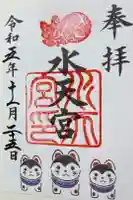 奉拝
水天宮
令和五年十一月二十五日